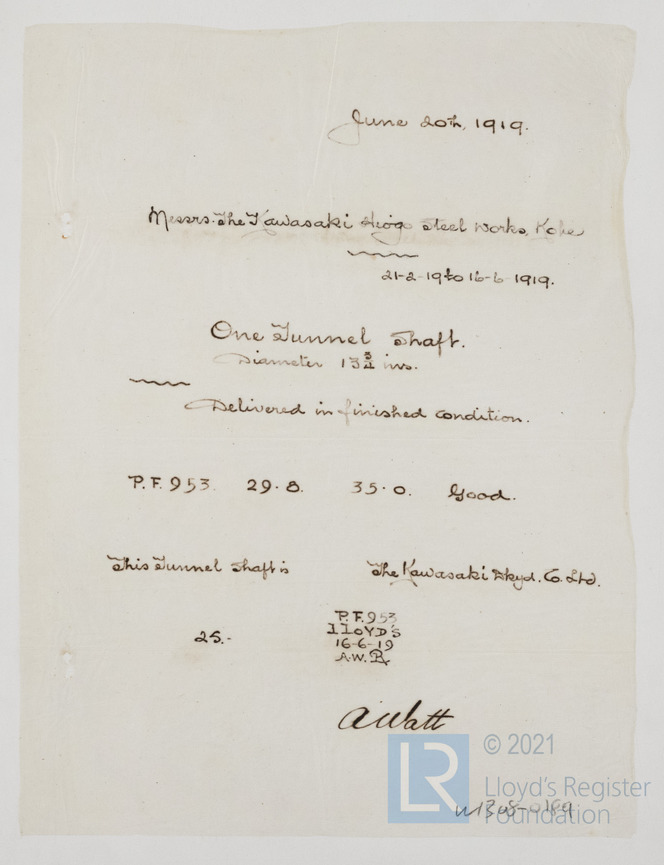 June 20th, 1919.
Messrs. The Kawasaki Hiogo Steel Works, Kobe
21-2-19 to 16-6-1919.
One Tunnel Shaft.
Diameter 13¾ ins.
Delivered in finished condition.
P.F. 953. 29·8. 35·0. Good.
This Tunnel Shaft is The Kawasaki Dkyd. Co. Ltd.
P.F. 953
LLOYD'S
25.- 16-6-19
A.W.
A Watt
LR © 2021
Lloyd's Register
Foundation